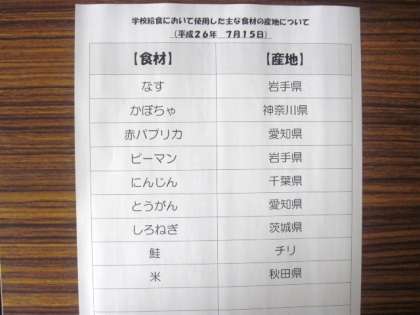 学校給食において使用した主な食材の産地について
（平成２６年　７月１５日）
【食材】 【産地】
なす 岩手県
かぼちゃ 神奈川県
赤パプリカ 愛知県
ピーマン 岩手県
にんじん 千葉県
とうがん 愛知県
しろねぎ 茨城県
鮭 チリ
米 秋田県